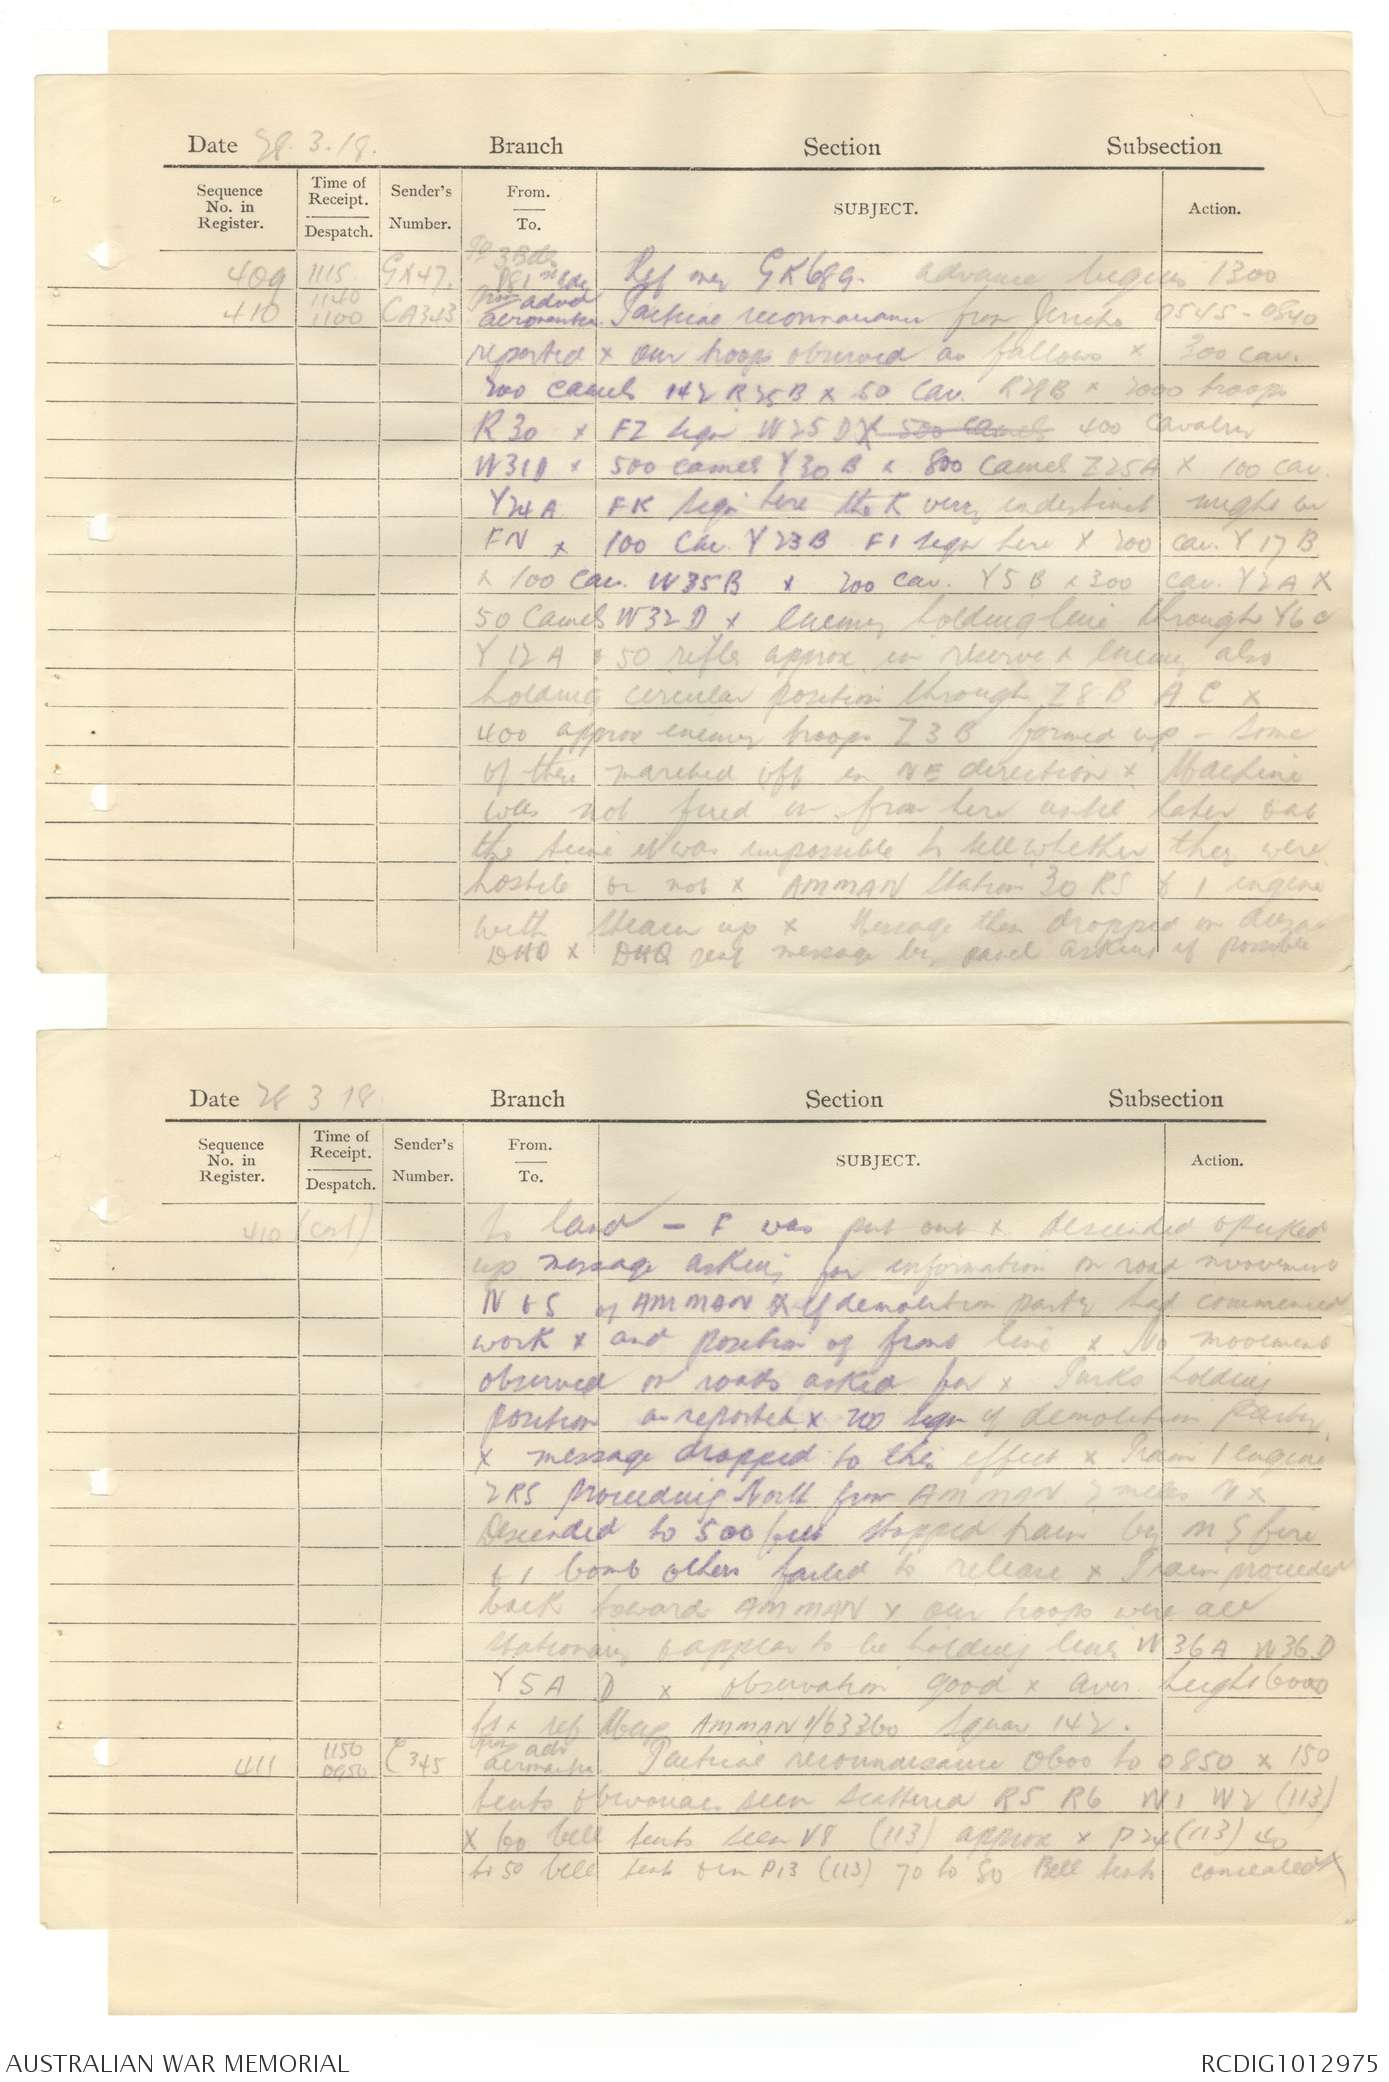 Date 28.3.18. Branch Section Subsection
Sequence No. in Register. Time of Receipt. Despatch. Sender's Number. From. To. SUBJECT. Action.
409 1115 GK47. To 3 Bde 181 Bde Ref my GK689. advance begins 1300
410 1140 1100 CA343 from advd aeronautics Tactical reconnaissance from Jericho 0545-0840
reported x our troops observed as follows x 300 cav.
200 camels 142 R25B x 50 Cav. R29B x 2000 troops
R30 x FZ sign W25D x 500 camels 400 Cavalry
W31D x 500 camels Y30B x 800 camels Z25A x 100 cav.
Y24A FK sign here the K very indistinct might be
FN x 100 Cav. Y23B F1 sign here x 200 cav. Y17B
x 100 cav. W35B x 200 cav. Y5B x 300 cav. Y2A x
50 Camels W32D x Enemy holding line through Y6C
Y12A & 50 rifles approx in reserve x Enemy also
holding circular position through Z8B A C x
400 approx enemy troops Z3B formed up - Some
of these marched off in NE direction x Machine
was not fired on from here until later & at
the time it was impossible to tell whether they were
hostile or not x AMMAN Station 30 RS & 1 engine
with steam up x Message then dropped on Anzac
DHQ x DHQ sent message by panel asking if possible
Date 28 3 18. Branch Section Subsection
Sequence No. in Register. Time of Receipt. Despatch. Sender's Number. From. To. SUBJECT. Action.
410 (cont) to land - F was put out x descended & picked
up message asking for information on road movement
N & S of AMMAN x If demolition party had commenced
work x and position of front line x No movement
observed on roads asked for x Turks holding
position as reported x no sign of demolition party
x message dropped to this effect x Train 1 engine
2RS proceeding North from AMMAN 2 miles N x
Descended to 500 feet stopped train by MG fire
& 1 bomb others failed to release x Train proceeded
back towards AMMAN x our troops were all
stationary & appear to be holding line W36A W36D
Y5A D x observation good x aver. height 6000
ft x ref Map AMMAN 1/63360 Square 142.
411 1150 0950 C345 from adv aeronautics Tactical reconnaissance 0600 to 0850 x 150
tents & bivouacs seen scattered R5 R6 W1 W2 (113)
x 60 bell tents seen V8 (113) approx x P24 (113) 40
to 50 bell tents & in P13 (113) 70 to 80 Bell tents concealed x
AUSTRALIAN WAR MEMORIAL RCDIG1012975